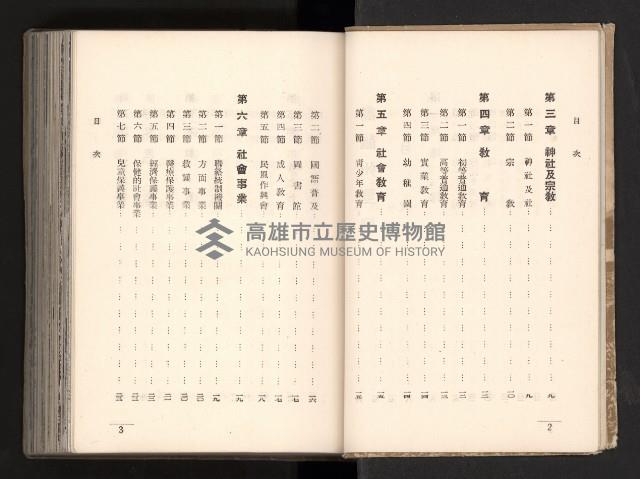 目次
第三章 神社及宗教……九
第一節 神社及社……九
第二節 宗教……一〇
第四章 教育……一二
第一節 初等普通教育……一二
第二節 高等普通教育……一三
第三節 實業教育……一四
第四節 幼稚園……一四
第五章 社會教育……一五
第一節 青少年教育……一五
2
第二節 國語普及……一六
第三節 圖書館……一七
第四節 成人教育……一七
第五節 民風作興會……一八
第六章 社會事業……一九
第一節 聯絡統制機關……一九
第二節 方面事業……二〇
第三節 救護事業……二〇
第四節 醫療保護事業……二一
第五節 經濟保護事業
第六節 保健的社會事業
第七節 兒童保護事業
目次
3
高雄市立歷史博物館
KAOHSIUNG MUSEUM OF HISTORY